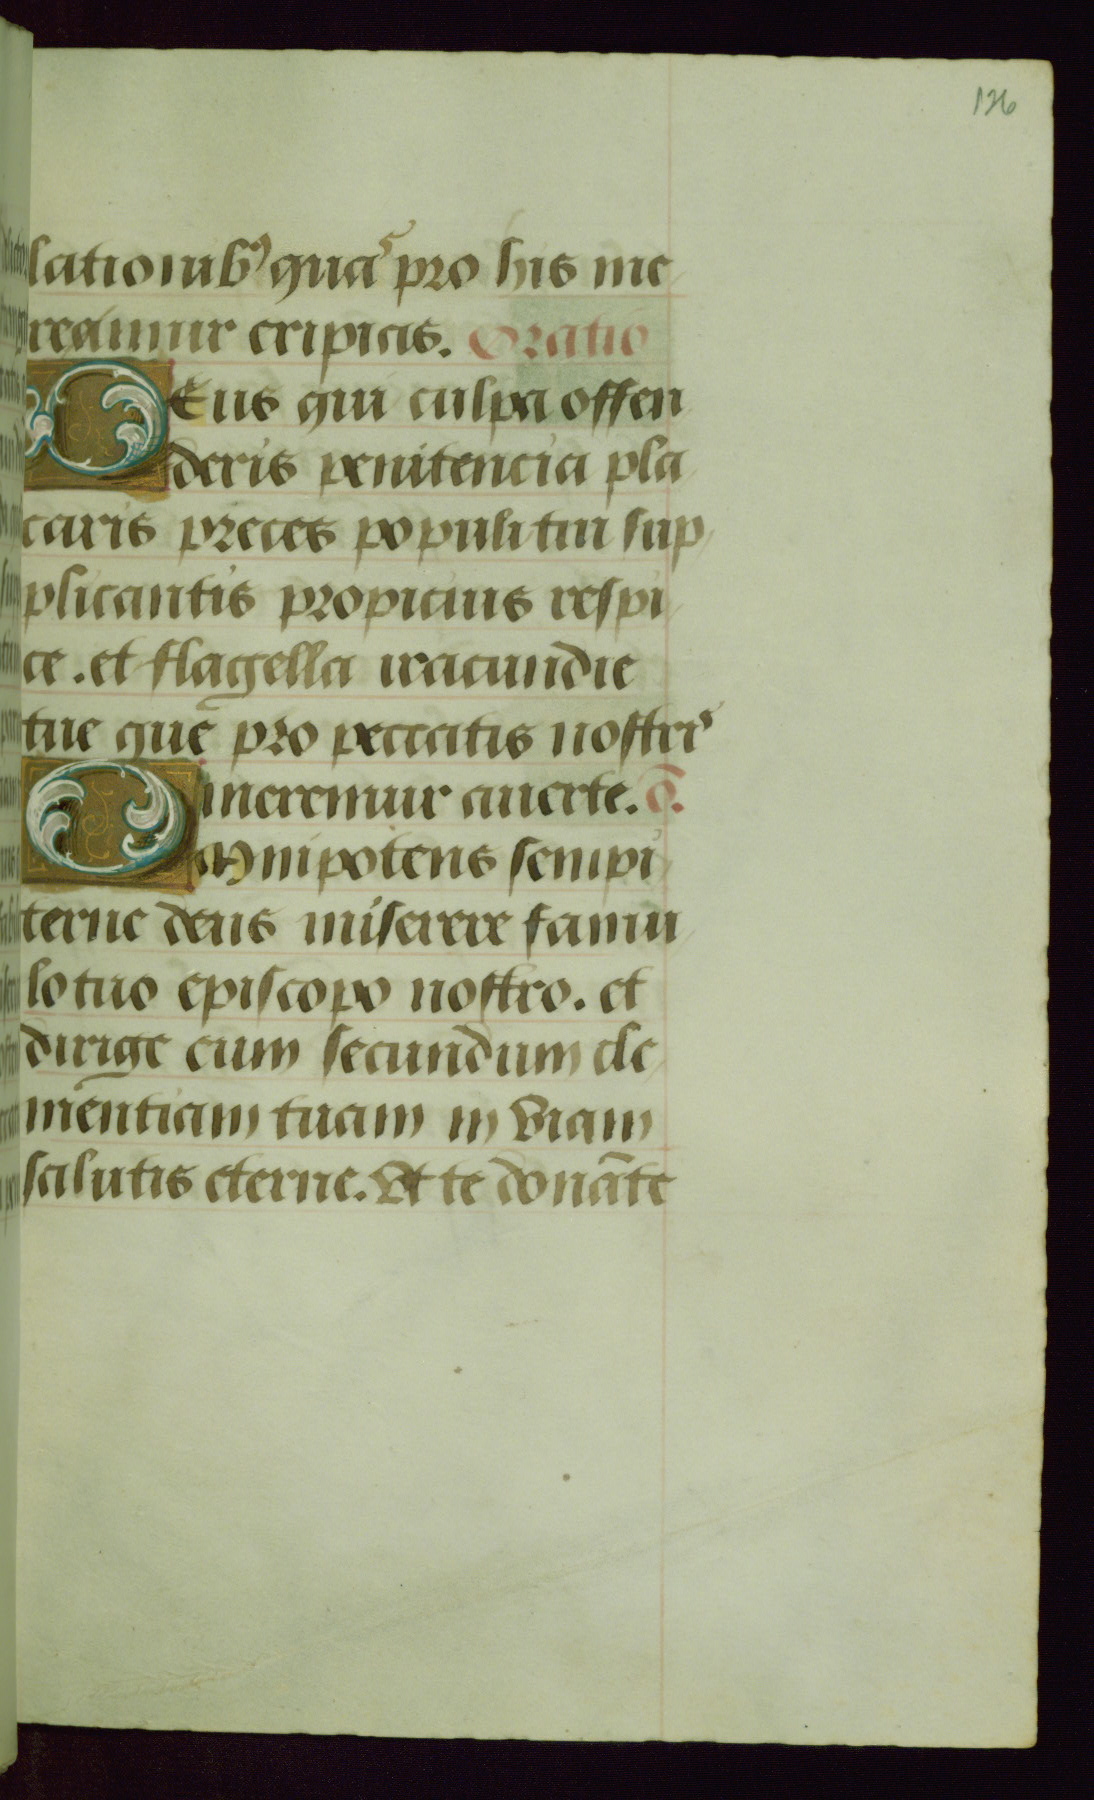 126
lationibꝰ quaˢ pro his me
reamur eripias. Oratio
DEus qui culpa offen
deris penitencia pla
caris preces populi tui sup
plicantis propicius respi
ce. et flagella iracundie
tue que pro peccatis nostrˢ
meremur auerte. ō.
Omnipotens sempi
terne deus miserere famu
lo tuo episcopo nostro. et
dirige eum secundum cle
mentiam tuam in viam
salutis eterne. Vt te donāte